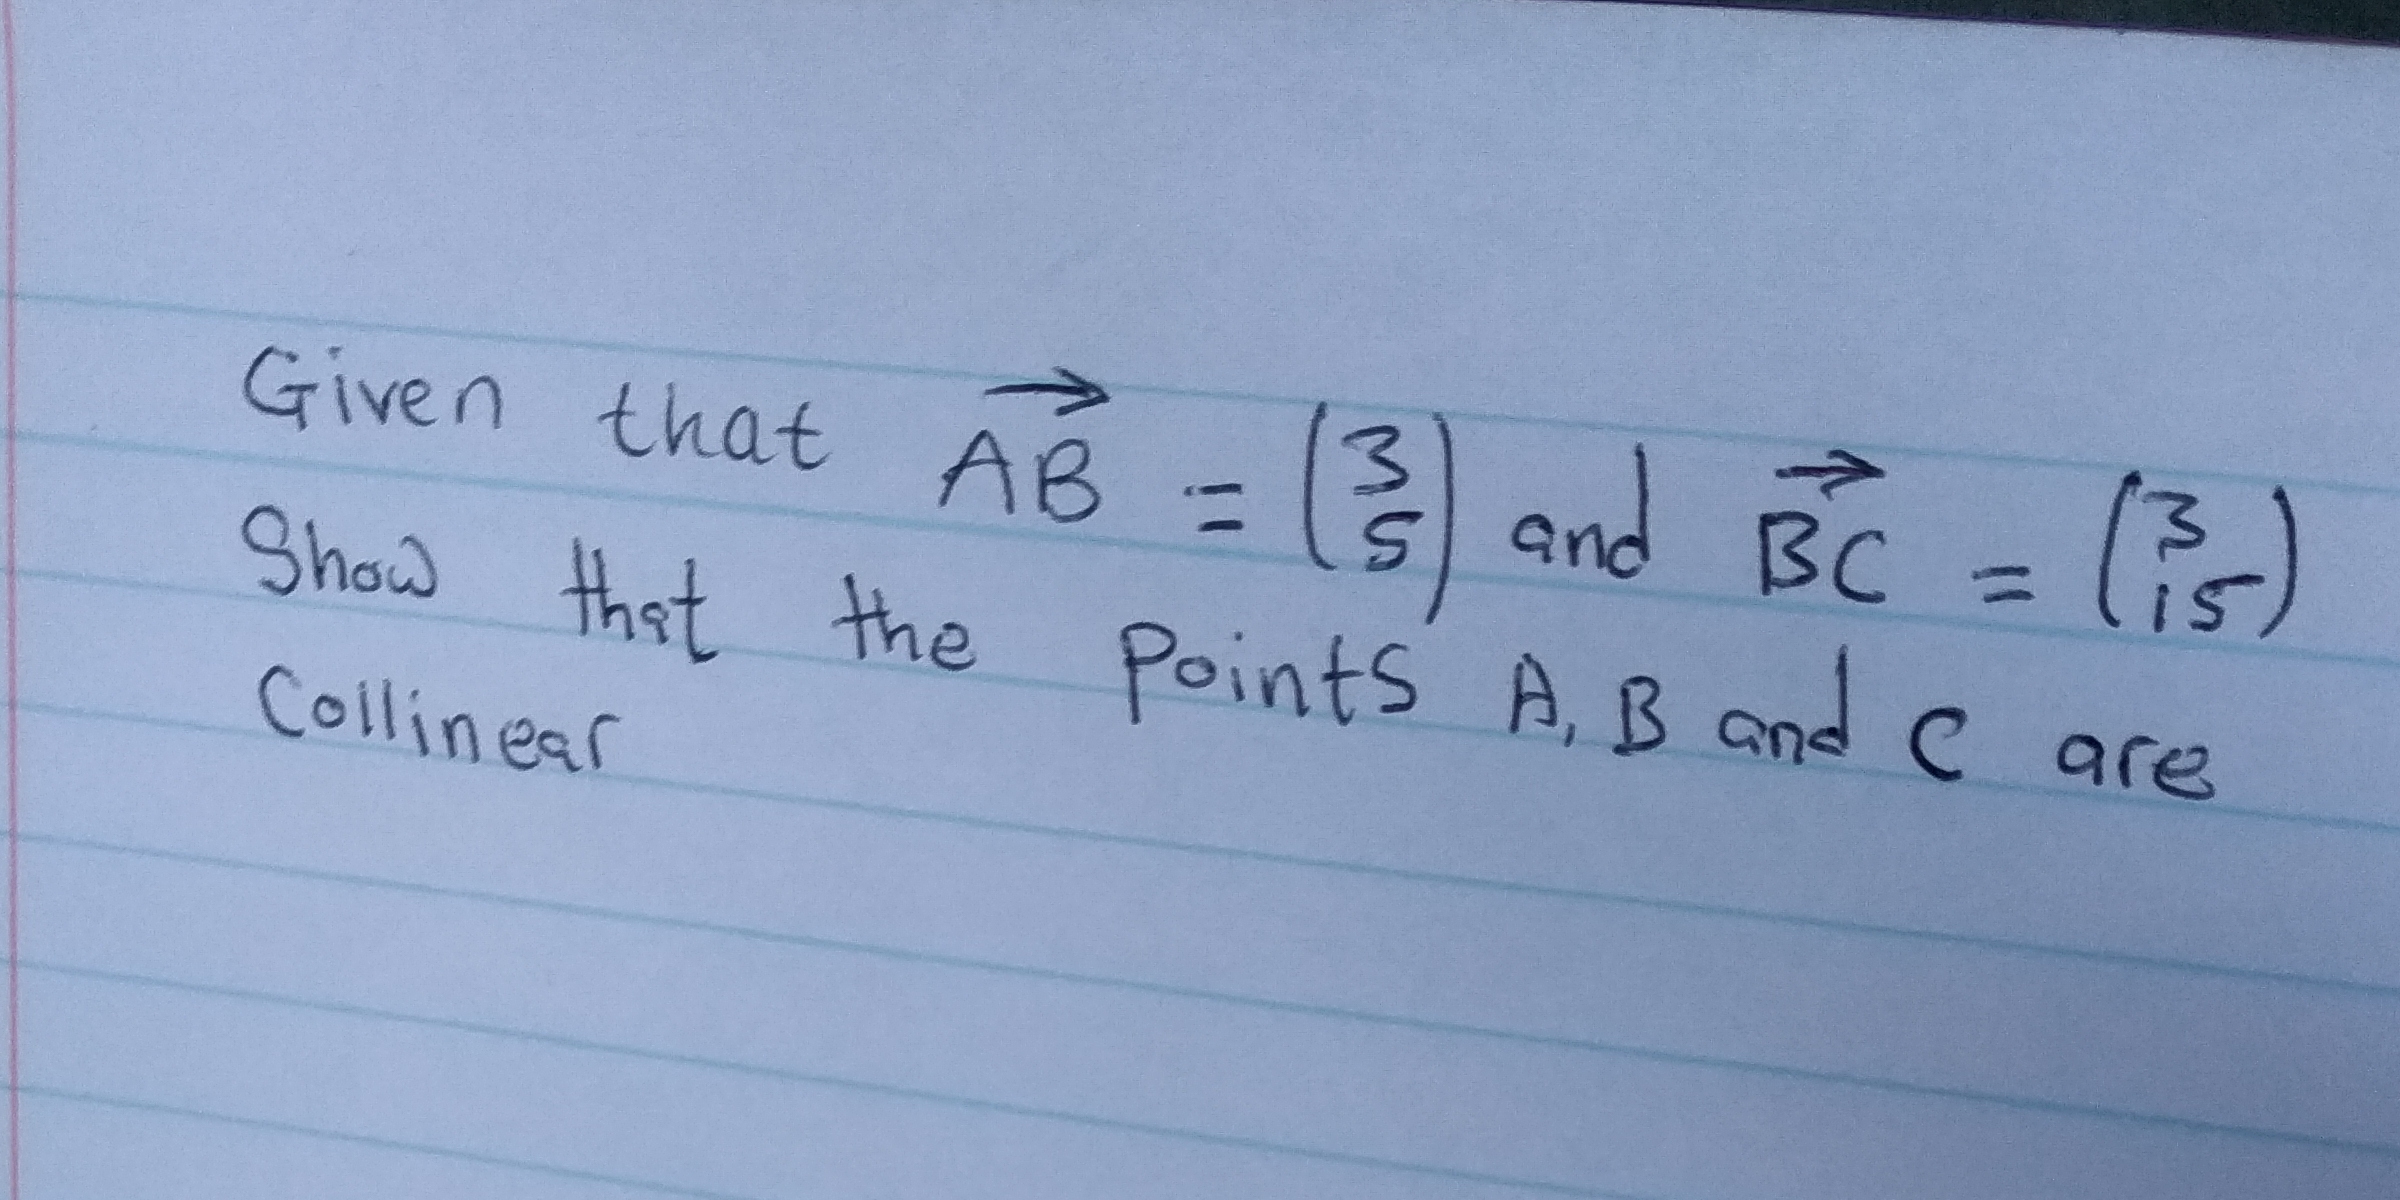 Given that \overrightarrow{AB} = \begin{pmatrix} 3 \\ 5 \end{pmatrix} and \overrightarrow{BC} = \begin{pmatrix} 3 \\ 15 \end{pmatrix}
Show that the Points A, B and C are
Collinear